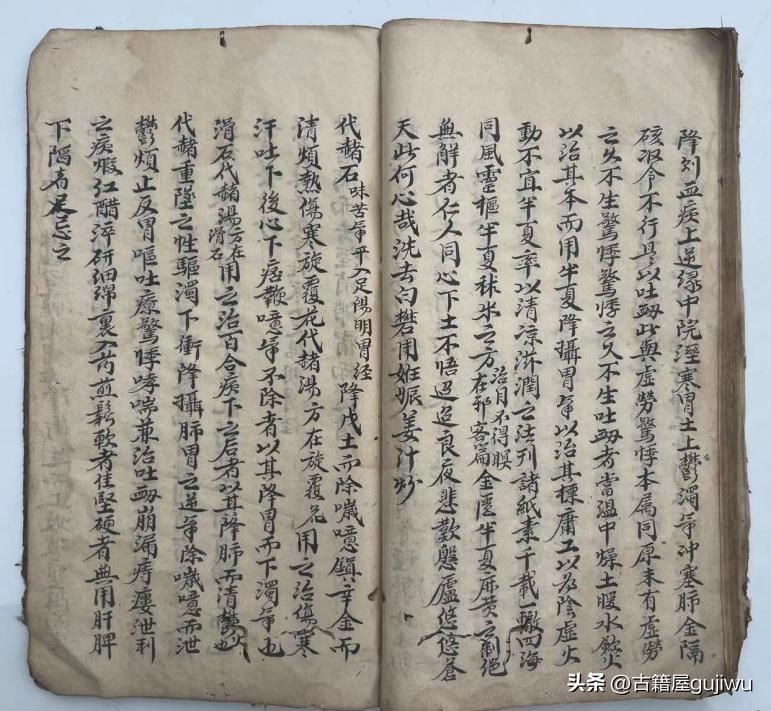 降刘血疾上逆缘中院溼寒胃土上鬱濁氣冲塞肺金隔
硋収令不行是以吐衄此與虛勞驚悸本属同原未有虛勞
之久不生驚悸驚悸之久不生吐衄者當温中燥土暖水歛火
以治其本而用半夏降攝胃氣以治其標庸工以为陰虛火
動不宜半夏率以清凉滋潤之法刋諸紙素千載一轍四海
同風靈樞半夏秫米之方治目不得瞑在邪客篇金匱半夏麻黄之制絕
無解者仁人同心下士不悟迢迢良夜悲歎盧悠悠蒼
天此何心哉洗去白礬用妊娠姜汁炒
代赭石味苦氣平入足陽明胃經降戊土而除噦噫鎮辛金而
清煩熱傷寒旋覆花代赭湯方在旋覆花用之治傷寒
汗吐下後心下痞鞕噫氣不除者以其降胃而下濁氣也
滑石代赭湯方在滑石用之治百合病下之后者以其降肺而清鬱火也
代赭重墜之性驅濁下衝降攝肺胃之逆氣除噦噫而泄
鬱煩止反胃嘔吐療驚悸哮喘兼治吐衄崩漏痔瘻泄利
之病煅红醋淬研细绵裹入药煎鬆軟者佳堅硬者無用肝脾
下陷者忌之
头条 @古籍屋gujiwu